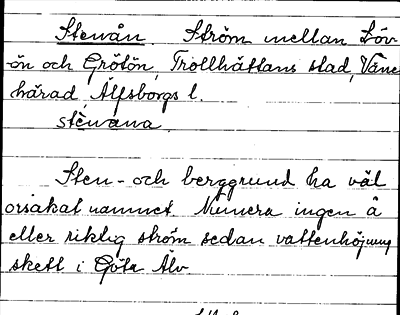 Stenån. Ström mellan Löv-
-ön och Grötön, Trollhättans stad, Väne
härad, Älfsborgs l.
stènana.
Sten- och berggrund ha väl
orsakat namnet. Numera ingen å
eller riklig ström sedan vattenhöjning
skett i Göta Älv